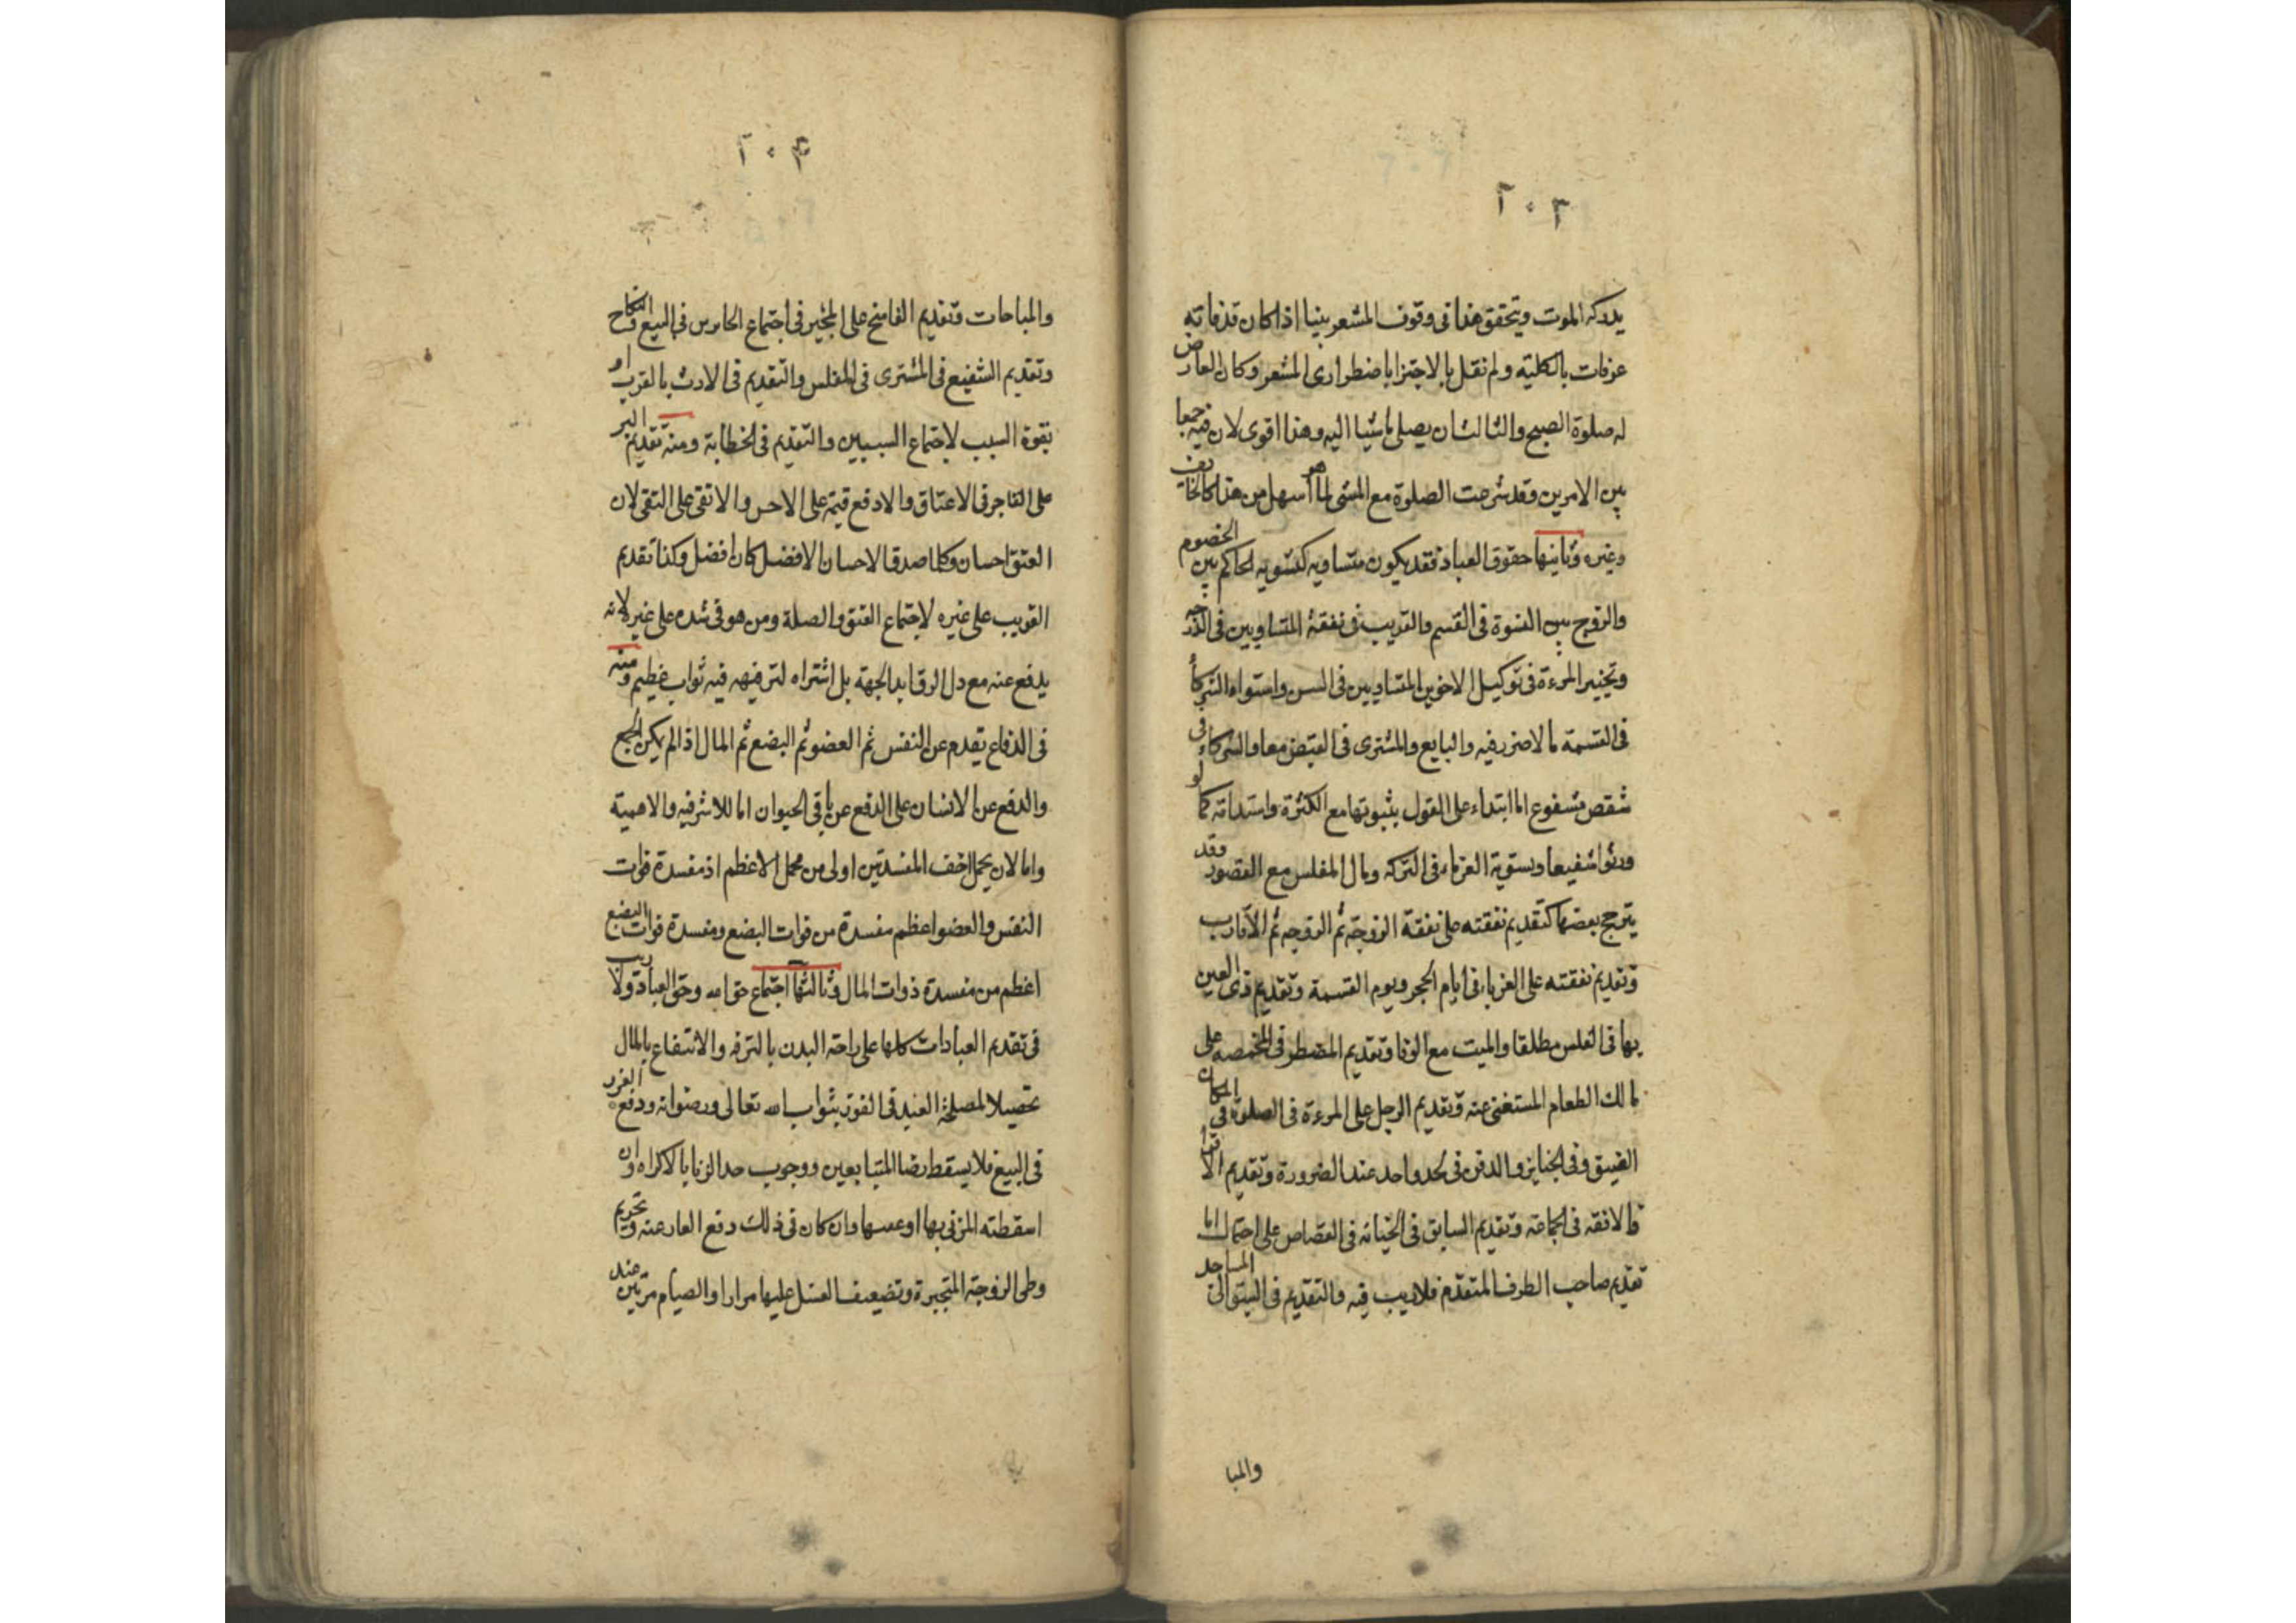 ٢٠٣
يدركه الموت ويتحقق هذا في وقوف المشعر بنيا اذا كان قد فاته
عرفات بالكلية ولم نقل بالاجتزا باضطراري المشعر وكان العارض
له صلوة الصبح والثالث ان يصلي ماشيا اليه وهذا اقوى لان فيه جمعا
بين الامرين وقد شرحت الصلوة مع المشي لما هو اسهل من هذا كالخائف
وغيره وثانيها حقوق العباد فقد يكون متساويه كتسويه الحاكم بين الخصوم
والزوج بين النسوة في القسم والقريب في نفقة المتساويين في الدرجه
وتخيير المرءة في توكيل الاخوين المتساويين في السن واستواء الشركأ
في القسمة لما لا ضرر فيه والبايع والمشتري في القبض معا والشركاء في
شقص مشفوع اما ابتداء على القول بثبوتها مع الكثرة واستدامة كما لو
ورثوا شفيعا وبستوية الغرماء في التركه ومال المفلس مع القصور وقد
يترجح بعضها كتقديم نفقته على نفقة الزوجة ثم الزوجه ثم الاقارب
وتقديم نفقته على الغرماء في ايام الحجر ويوم القسمة وتقديم ذي العين
بها في الفلس مطلقا والميت مع الوفا وتقديم المضطر في المخمصه على
مالك الطعام المستغني عنه وتقديم الرجل على المرءة في الصلوة في المكان
الضيق وفي الجنايز والدفن في لحد واحد عند الضرورة وتقديم الاقرأ
فالافقه في الجماعة وتقديم السابق في الجنايه في القصاص على احتمال اما
تقديم صاحب الطرف المتقدم فلا ريب فيه والتقديم في السبق الى المساجد
والمبا
٢٠٤
والمباحات وتقديم الفاسخ على المجيز في اجتماع الخاير في البيع والنكاح
وتقديم الشفيع في المشتري في المفلس والتقديم في الارث بالقرب او
بقوة السبب لاجتماع السببين والتقديم في الخطابة ومنه تقديم البر
على الفاجر في الاعتاق والارفع قيمة على الاخس والاتقى على التقي لان
العتق احسان وكلما صدق الاحسان الافضل كان افضل وكذا تقديم
القريب على غيره لاجتماع العتق والصلة ومن هو في شده على غيره لانه
يدفع عنه مع ذل الرق ابد الجهة بل اشتراه لترفيهه فيه ثواب عظيم ومنه
في الدفاع يقدم عن النفس ثم العضو ثم البضع ثم المال اذا لم يكن الجمع
والدفع عن الانسان على الدفع عن باقي الحيوان اما للاشرفيه والاهمية
واما لان تحمل اخف المفسدتين اولى من تحمل الاعظم اذ مفسدة فوات
النفس والعضو اعظم مفسدة من فوات البضع ومفسدة فوات البضع
اعظم من مفسدة فوات المال وثالثها اجتماع حق الله وحق العباد ولا ريب
في تقديم العبادات كلها على راحة البدن بالترفه والانتفاع بالمال
تحصيلا لمصلحة العبد في الفوز بثواب الله تعالى ورضوانه ودفع الغرر
في البيع فلا يسقط برضا المتبايعين ووجوب حد الزنا بالاكراه وان
اسقطته المزني بها او عصبها وان كان في ذلك دفع العار عنه وتحريم
وطي الزوجة المتحيرة وتضعيف الغسل عليها مرارا والصيام مرتين عند